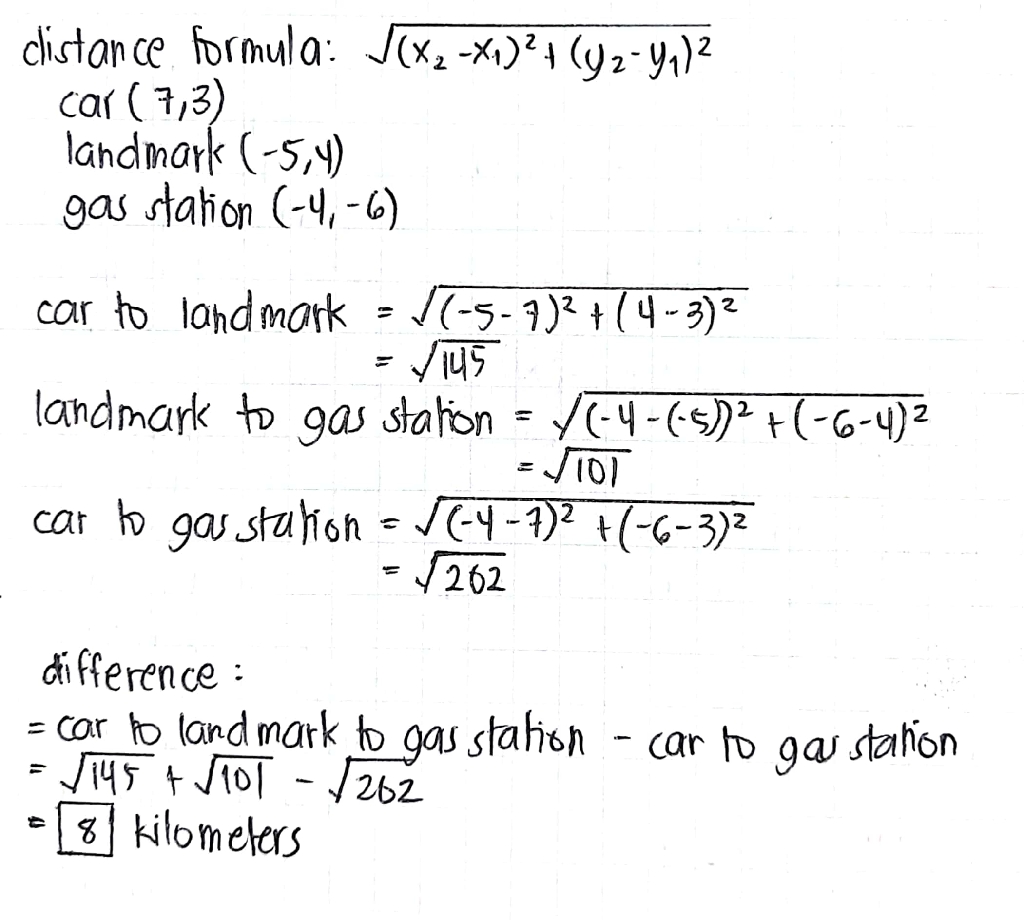 distance formula: √(x₂-x₁)² + (y₂-y₁)²
car (7,3)
landmark (-5,4)
gas station (-4,-6)
car to landmark = √(-5-7)² + (4-3)²
= √145
landmark to gas station = √(-4-(-5))² + (-6-4)²
= √101
car to gas station = √(-4-7)² + (-6-3)²
= √262
difference:
= car to landmark to gas station - car to gas station
= √145 + √101 - √262
= 8 kilometers